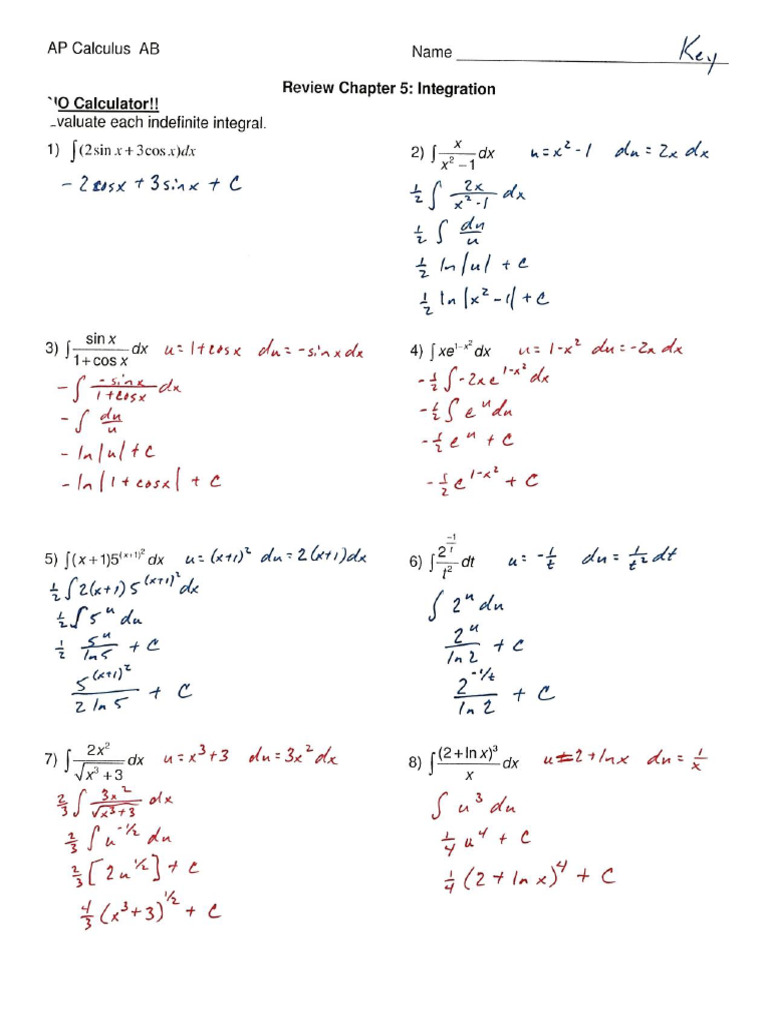 AP Calculus AB
Name Key
Review Chapter 5: Integration
NO Calculator!!
Evaluate each indefinite integral.
1) ∫(2sin x + 3cos x)dx
- 2cosx + 3sinx + C
2) ∫ x/(x² − 1) dx u = x² - 1 du = 2x dx
1/2 ∫ 2x/(x² - 1) dx
1/2 ∫ du/u
1/2 ln|u| + C
1/2 ln|x² - 1| + C
3) ∫ sin x/(1 + cos x) dx u = 1 + cosx du = -sinx dx
- ∫ -sinx/(1 + cosx) dx
- ∫ du/u
- ln|u| + C
- ln|1 + cosx| + C
4) ∫xe^(1−x²) dx u = 1 - x² du = -2x dx
-1/2 ∫ -2xe^(1-x²) dx
-1/2 ∫ e^u du
-1/2 e^u + C
-1/2 e^(1-x²) + C
5) ∫(x + 1)5^((x+1)²) dx u = (x+1)² du = 2(x+1)dx
1/2 ∫ 2(x+1) 5^((x+1)²) dx
1/2 ∫ 5^u du
1/2 5^u/ln5 + C
5^((x+1)²)/(2 ln 5) + C
6) ∫ 2^(−1/t)/t² dt u = -1/t du = 1/t² dt
∫ 2^u du
2^u/ln 2 + C
2^(-1/t)/ln 2 + C
7) ∫ 2x²/√(x³ + 3) dx u = x³ + 3 du = 3x² dx
2/3 ∫ 3x²/√(x³+3) dx
2/3 ∫ u^(-1/2) du
2/3 [2u^(1/2)] + C
4/3 (x³ + 3)^(1/2) + C
8) ∫ (2 + ln x)³/x dx u = 2 + lnx du = 1/x
∫ u³ du
1/4 u⁴ + C
1/4 (2 + ln x)⁴ + C